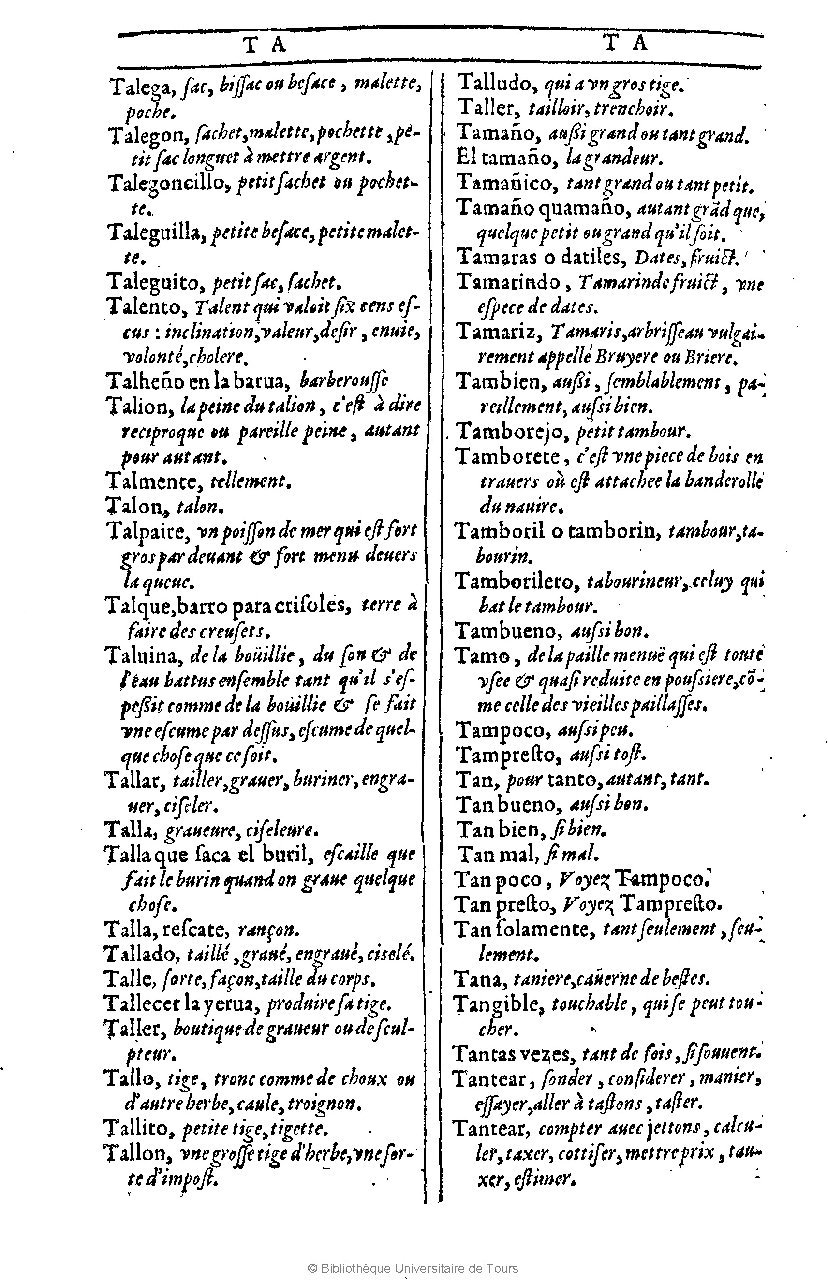 T A
Talega, ſac, biſſac ou beſace, malette,
poche.
Talegon, ſachet, malette, pochette, pe-
tit ſac longuet à mettre argent.
Talegoncillo, petit ſachet ou pochet-
te.
Taleguilla, petite beſace, petite malet-
te.
Taleguito, petit ſac, ſachet.
Talento, Talent qui valoit ſix cens eſ-
cus : inclination, valeur, deſir, enuie,
volonté, cholere.
Talheño en la barua, barberouſſe
Talion, la peine du talion, c'eſt à dire
reciproque ou pareille peine, autant
pour autant.
Talmente, tellement.
Talon, talon.
Talpaire, vn poiſſon de mer qui eſt fort
gros par deuant & fort menu deuers
la queue.
Talque, barro para criſoles, terre à
faire des creuſets.
Taluina, de la boüillie, du ſon & de
l'eau battus enſemble tant qu'il s'eſ-
peſsit comme de la boüillie & ſe fait
vne eſcume par deſſus, eſcume de quel-
que choſe que ce ſoit.
Tallar, tailler, grauer, buriner, engra-
uer, ciſeler.
Talla, graueure, ciſeleure.
Talla que ſaca el buril, eſcaille que
fait le burin quand on graue quelque
choſe.
Talla, reſcate, rançon.
Tallado, taillé, graué, engraué, ciselé.
Talle, ſorte, façon, taille du corps.
Tallecer la yerua, produire ſa tige.
Taller, boutique de graueur ou de ſcul-
pteur.
Tallo, tige, tronc comme de choux ou
d'autre herbe, caule, troignon.
Tallito, petite tige, tigette.
Tallon, vne groſſe tige d'herbe, vne ſor-
te d'impoſt.
T A
Talludo, qui a vn gros tige.
Taller, tailloir, trenchoir.
Tamaño, auſsi grand ou tant grand.
El tamaño, la grandeur.
Tamañico, tant grand ou tant petit.
Tamaño quamaño, autant grãd que,
quelque petit ou grand qu'il ſoit.
Tamaras o datiles, Dates, fruict.
Tamarindo, Tamarinde fruict, vne
eſpece de dates.
Tamariz, Tamaris, arbriſſeau vulgai-
rement appellé Bruyere ou Briere.
Tambien, auſsi, ſemblablement, pa-
reillement, auſsi bien.
Tamborejo, petit tambour.
Tamborete, c'eſt vne piece de bois en
trauers où eſt attachee la banderolle
du nauire.
Tamboril o tamborin, tambour, ta-
bourin.
Tamborilero, tabourineur, celuy qui
bat le tambour.
Tambueno, auſsi bon.
Tamo, de la paille menuë qui eſt toute
vſee & quaſi reduite en pouſsiere, cõ-
me celle des vieilles paillaſſes.
Tampoco, auſsi peu.
Tampreſto, auſsi toſt.
Tan, pour tanto, autant, tant.
Tan bueno, auſsi bon.
Tan bien, ſi bien.
Tan mal, ſi mal.
Tan poco, Voyez Tampoco.
Tan preſto, Voyez Tampreſto.
Tan ſolamente, tant ſeulement, ſeu-
lement.
Tana, taniere, cauerne de beſtes.
Tangible, touchable, qui ſe peut tou-
cher.
Tantas vezes, tant de fois, ſi ſouuent.
Tantear, ſonder, conſiderer, manier,
eſſayer, aller à taſtons, taſter.
Tantear, compter auec jettons, calcu-
ler, taxer, cottiſer, mettre prix, tau-
xer, eſtimer.
© Bibliothèque Universitaire de Tours